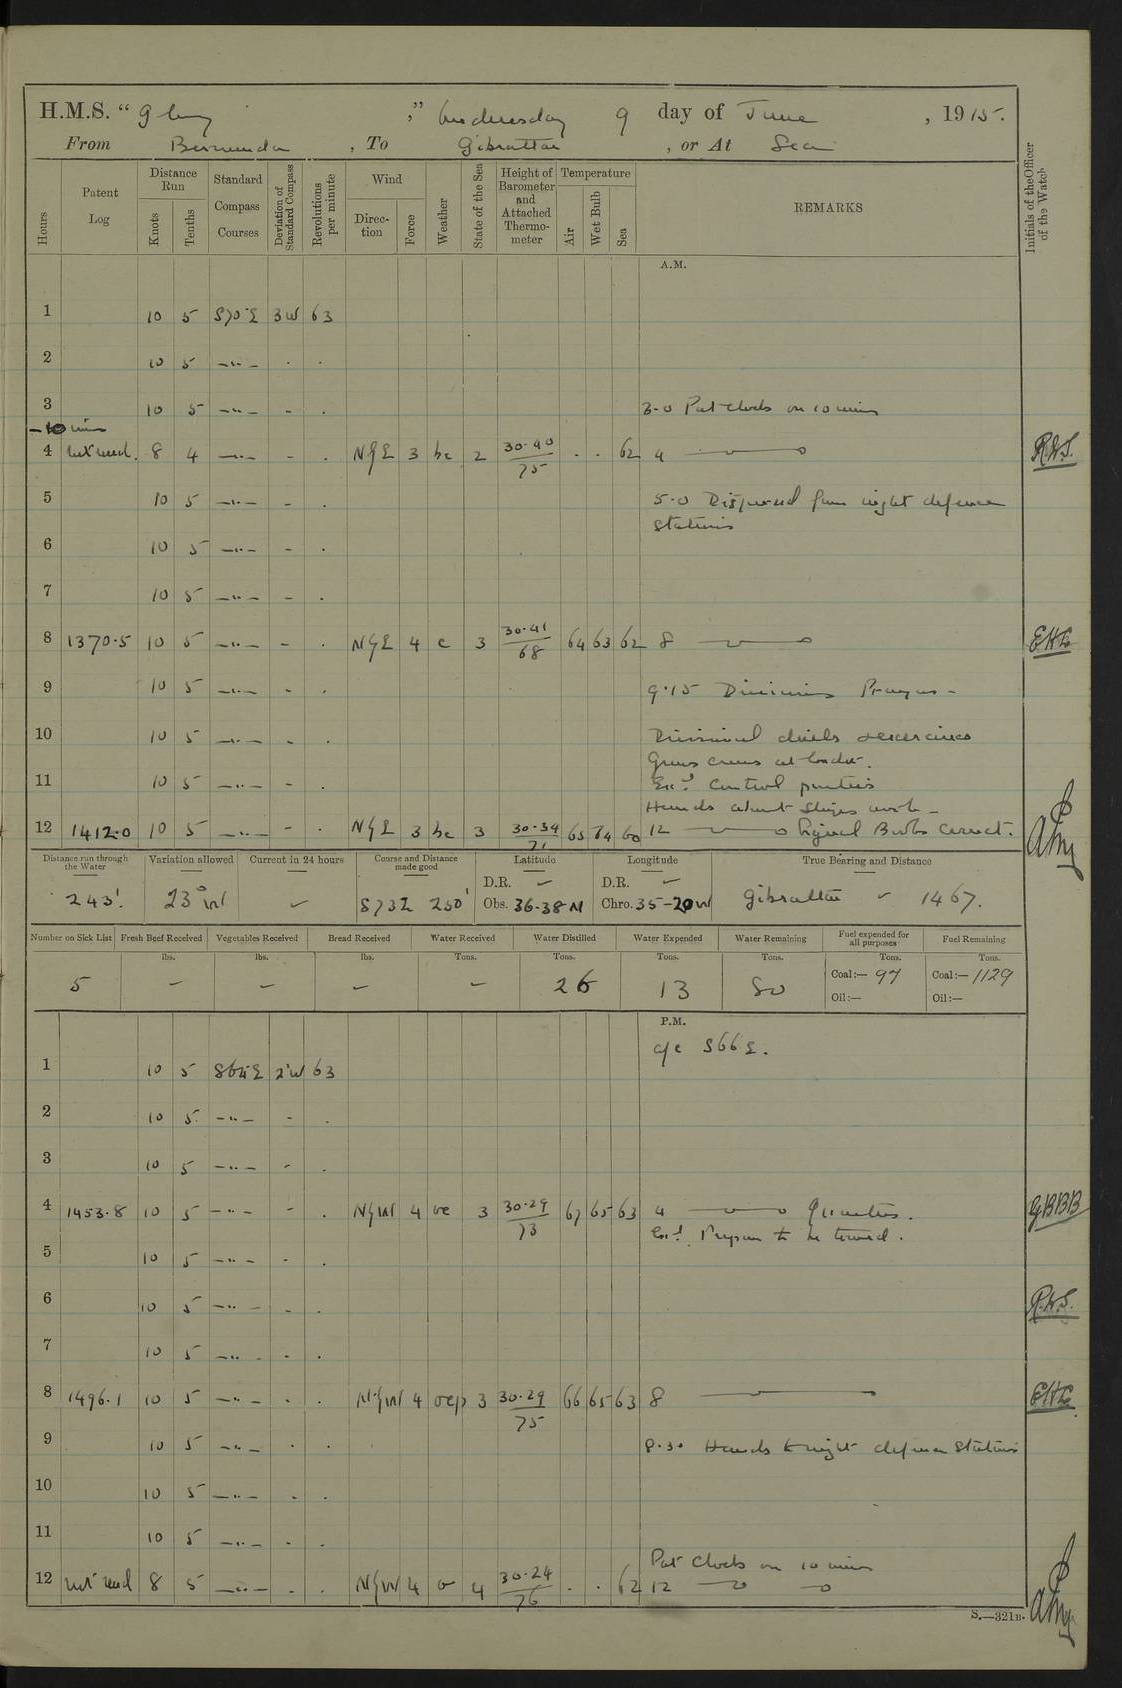 H.M.S. “Glory” Wednesday 9 day of June, 1915.
From Bermuda, To Gibraltar, or At Sea
Hours Patent Log Distance Run Knots Tenths Standard Compass Courses Deviation of Standard Compass Revolutions per minute Wind Direction Force Weather State of the Sea Height of Barometer and Attached Thermometer Temperature Air Wet Bulb Sea REMARKS Initials of the Officer of the Watch
A.M.
1 10 5 S70°E 3W 63
2 10 5 —"— - .
3 10 5 —"— - . 3-0 Put clocks on 10 mins
-10 mins
4 Not read. 8 4 —"— - . NEE 3 bc 2 30·40/75 . . 62 4 R.W.S.
5 10 5 —"— - . 5·0 Dispersed from night defence
stations
6 10 5 —"— - .
7 10 5 —"— - .
8 1370·5 10 5 —"— - . 4 c 3 30·41/68 64 63 62 8 EHL
9 10 5 —"— - . 9·15 Divisions Prayers -
10 10 5 —"— - . Divisional drills & exercises
Guns crews at loader.
11 10 5 —"— - . Ex.d Control parties
Hands about Ships work -
12 1412·0 10 5 —"— - . 3 bc 3 30·34/71 65 64 60 12 Signal Books Correct.
Distance run through the Water Variation allowed Current in 24 hours Course and Distance made good Latitude Longitude True Bearing and Distance
243'. 23° W — S73E 250' D.R. — Obs. 36-38 N D.R. — Chro. 35-20 W Gibraltar — 1467.
Number on Sick List Fresh Beef Received Vegetables Received Bread Received Water Received Water Distilled Water Expended Water Remaining Fuel expended for all purposes Fuel Remaining
lbs. lbs. lbs. Tons. Tons. Tons. Tons. Tons. Tons.
5 — — — — 26 13 80 Coal:— 97 Coal:— 1129
Oil:— Oil:—
P.M.
c/c S66E.
1 10 5 2°W 63
2 10 5 —"— - .
3 10 5 —"— - .
4 1453·8 10 5 —"— - . NNW 4 3 30·29/73 67 65 63 4 Quarters. GBBB
Ex.d Prepare to be towed.
5 10 5 —"— - .
6 10 5 —"— - . R.W.S.
7 10 5 —"— - .
8 1496·1 10 5 —"— . . NNW 4 ocp 3 30·29/75 66 65 63 8 EHL
9 10 5 —"— . . 8·30 Hands to night defence Stations
10 10 5 —"— . .
11 10 5 —"— - .
Put Clocks on 10 mins
12 not read 8 5 —"— . . NNW 4 o 4 30·24/76 . . 62 12
S.—321B.